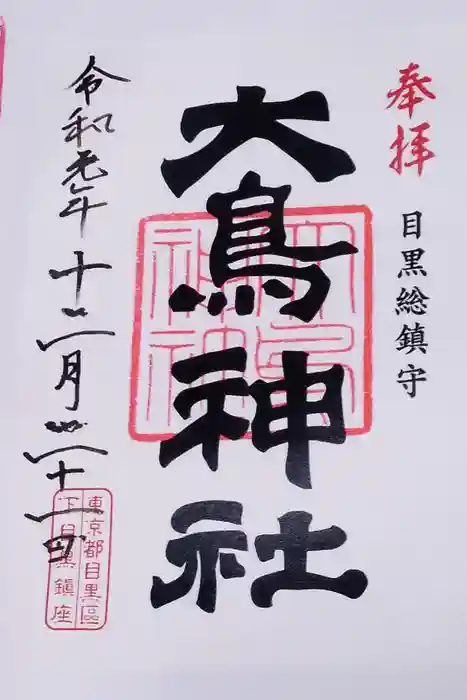 奉拝
目黒総鎮守
大鳥神社
令和元年十二月二十一日
東京都目黒區
下目黒鎮座